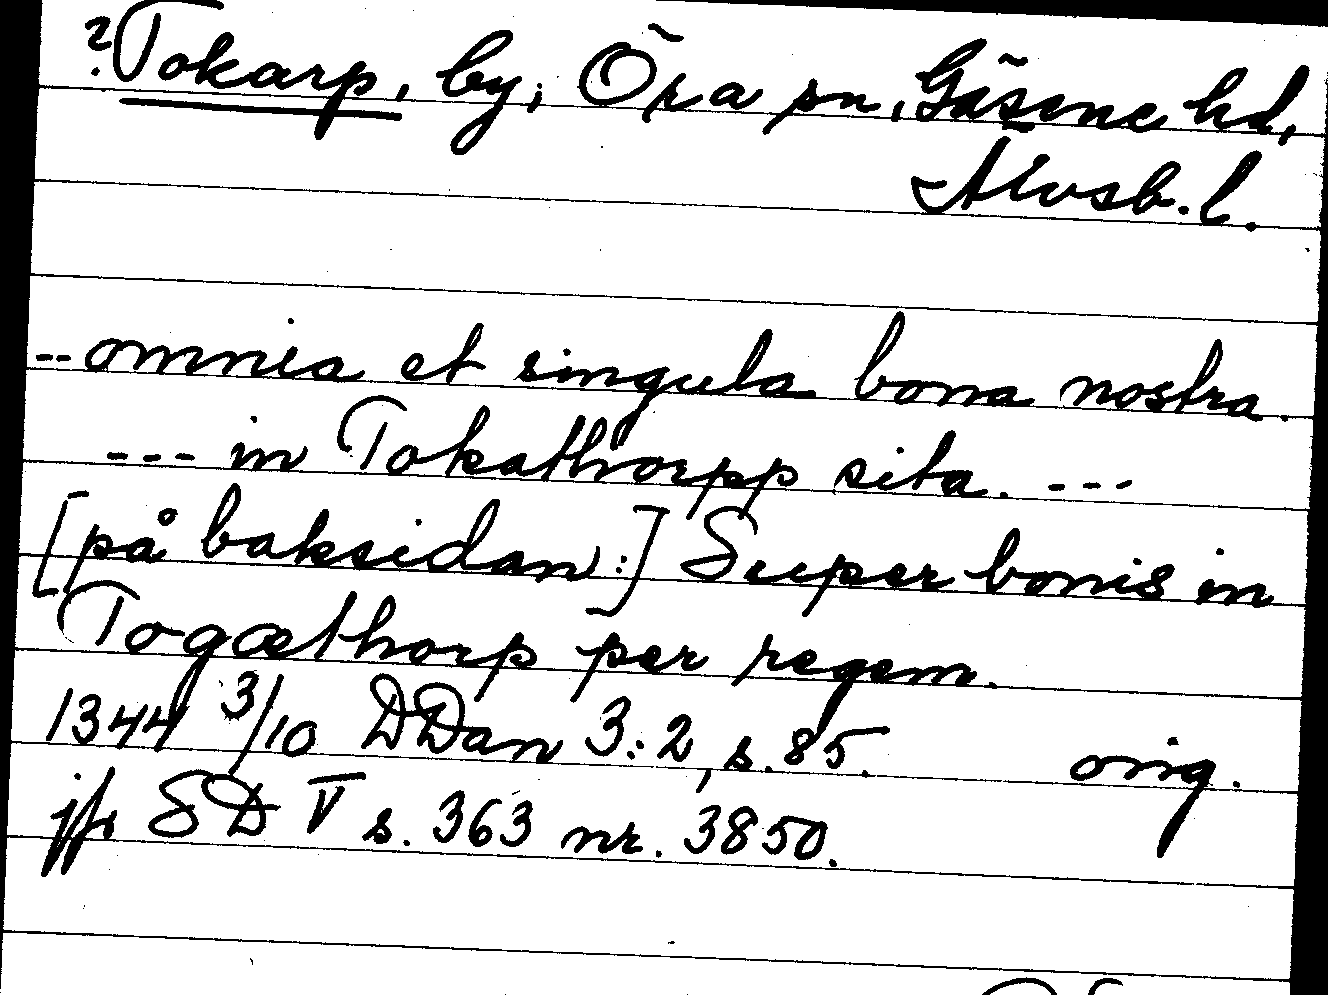 ? Tokarp, by, Öra sn, Gäsene hd,
Älvsb. l.
-- omnia et singula bona nostra.
--- in Tokathorpp sita. ---
[på baksidan:] Super bonis in
Togæthorp per regem.
1344 3/10 DDan 3:2, s. 85. orig.
jfr SD V s. 363 nr. 3850.